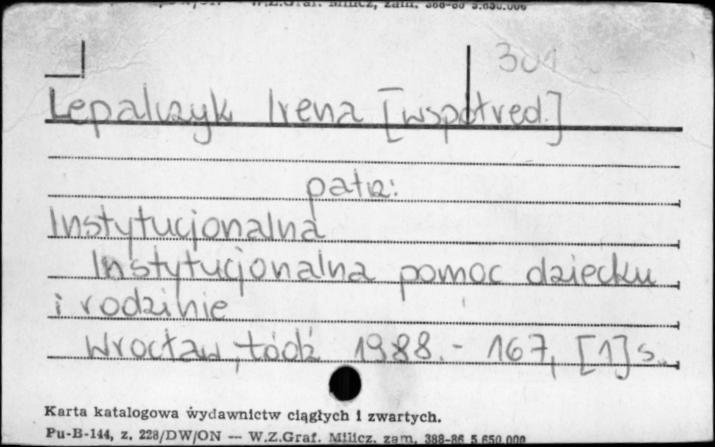 W.Z.Graf. Milicz, zam. 388-86 5.650.000
301
Lepalczyk Irena [współred.]
patrz:
Instytucjonalna
Instytucjonalna pomoc dziecku
i rodzinie
Wrocław, Łódź 1988. - 167, [1] s.
Karta katalogowa wydawnictw ciągłych i zwartych.
Pu-B-144, z. 228/DW/ON — W.Z.Graf. Milicz, zam. 388-86 5.650.000